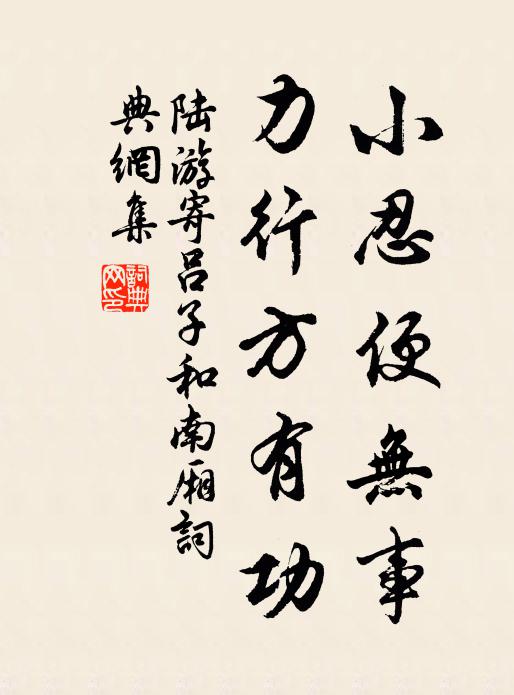 小忍便無事
力行方有功
陸游寄呂子和南廂詞
典網集
詞典
网印